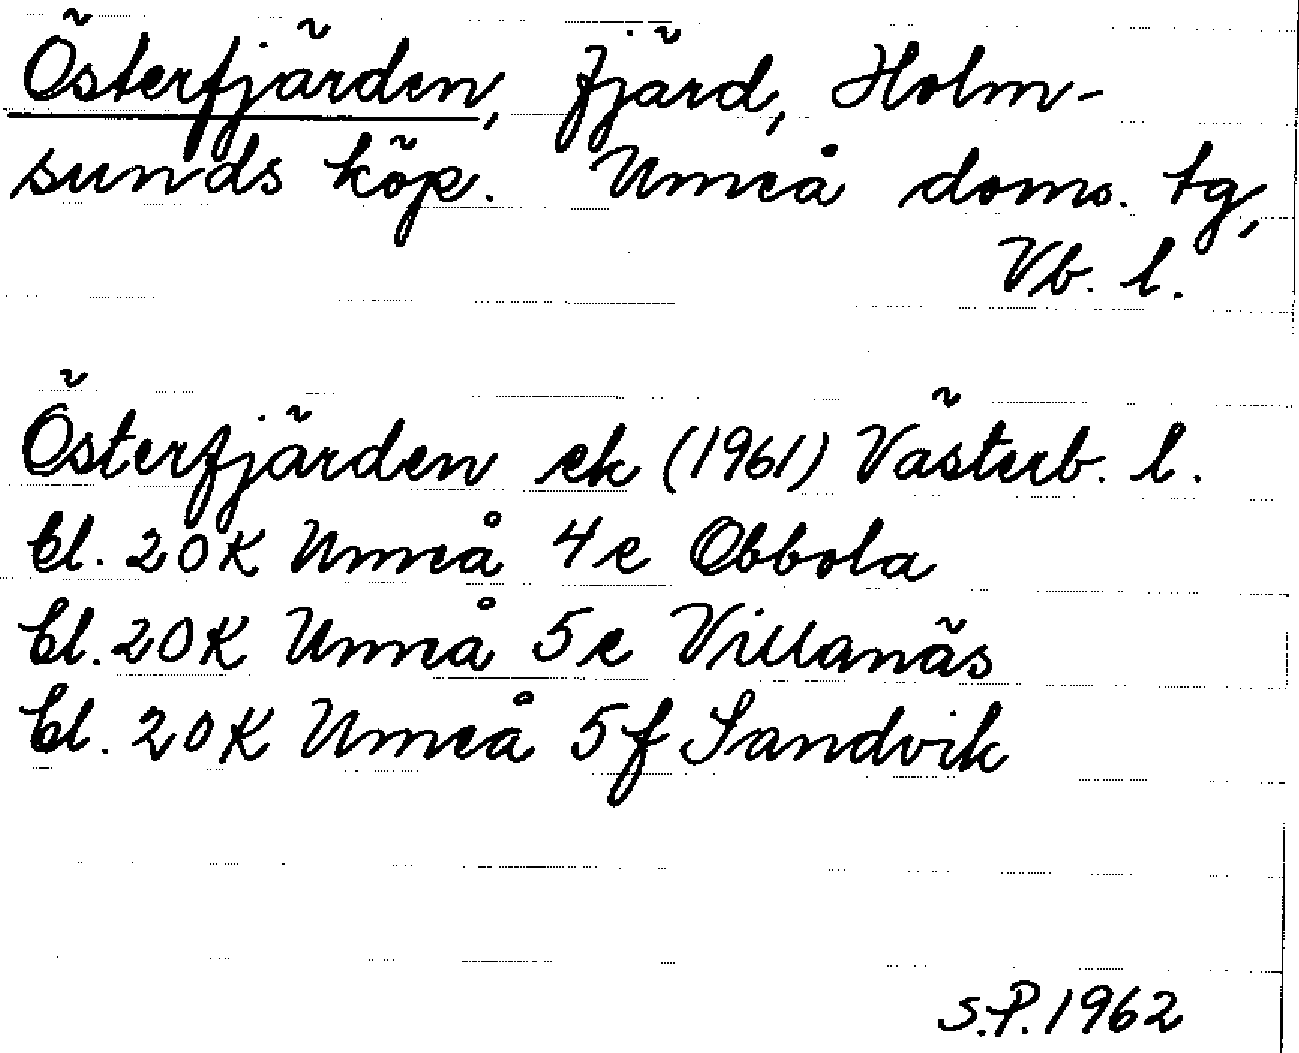 Österfjärden, fjärd, Holm-
sunds köp. Umeå doms. tg,
Vb. l.
Österfjärden ek (1961) Västerb. l.
bl. 20K Umeå 4e Obbola
bl. 20K Umeå 5e Villanäs
bl. 20K Umeå 5f Sandvik
S.P. 1962